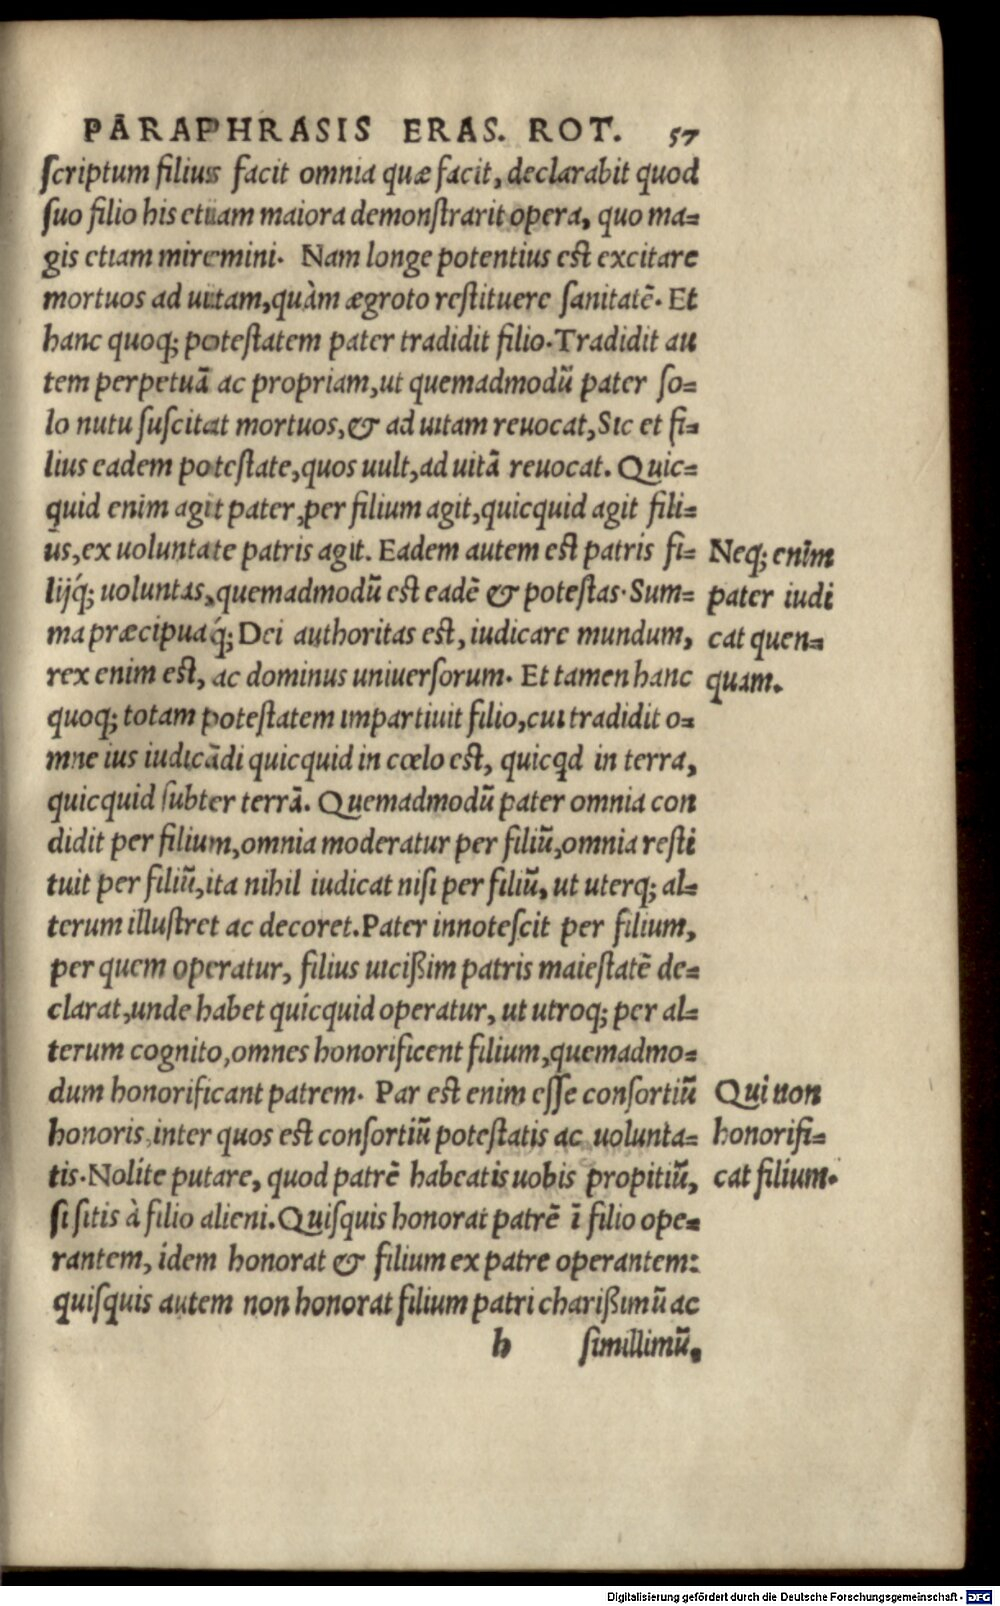 PARAPHRASIS ERAS. ROT. 57
ſcriptum filius facit omnia quæ facit, declarabit quod
ſuo filio his etiam maiora demonſtrarit opera, quo ma=
gis etiam miremini. Nam longe potentius eſt excitare
mortuos ad uitam, quàm ægroto reſtituere ſanitatē. Et
hanc quoq; poteſtatem pater tradidit filio. Tradidit au
tem perpetuā ac propriam, ut quemadmodū pater ſo=
lo nutu ſuſcitat mortuos, & ad uitam reuocat, Sic et fi=
lius eadem poteſtate, quos uult, ad uitā reuocat. Quic=
quid enim agit pater, per filium agit, quicquid agit fili=
us, ex uoluntate patris agit. Eadem autem eſt patris fi=
lijq́; uoluntas, quemadmodū eſt eadē & poteſtas. Sum=
ma præcipuaq́; Dei authoritas eſt, iudicare mundum,
rex enim eſt, ac dominus uniuerſorum. Et tamen hanc
quoq; totam poteſtatem impartiuit filio, cui tradidit o=
mne ius iudicādi quicquid in cœlo eſt, quicqd in terra,
quicquid ſubter terrā. Quemadmodū pater omnia con
didit per filium, omnia moderatur per filiū, omnia reſti
tuit per filiū, ita nihil iudicat niſi per filiū, ut uterq; al=
terum illuſtret ac decoret. Pater innoteſcit per filium,
per quem operatur, filius uicißim patris maieſtatē de=
clarat, unde habet quicquid operatur, ut utroq; per al=
terum cognito, omnes honorificent filium, quemadmo=
dum honorificant patrem. Par eſt enim eſſe conſortiū
honoris, inter quos eſt conſortiū poteſtatis ac uolunta=
tis. Nolite putare, quod patrē habeatis uobis propitiū,
ſi ſitis à filio alieni. Quiſquis honorat patrē ī filio ope=
rantem, idem honorat & filium ex patre operantem:
quiſquis autem non honorat filium patri charißimū ac
h ſimillimū,
Neq; enim
pater iudi
cat quen=
quam.
Qui non
honorifi=
cat filium.
Digitalisierung gefördert durch die Deutsche Forschungsgemeinschaft - DFG